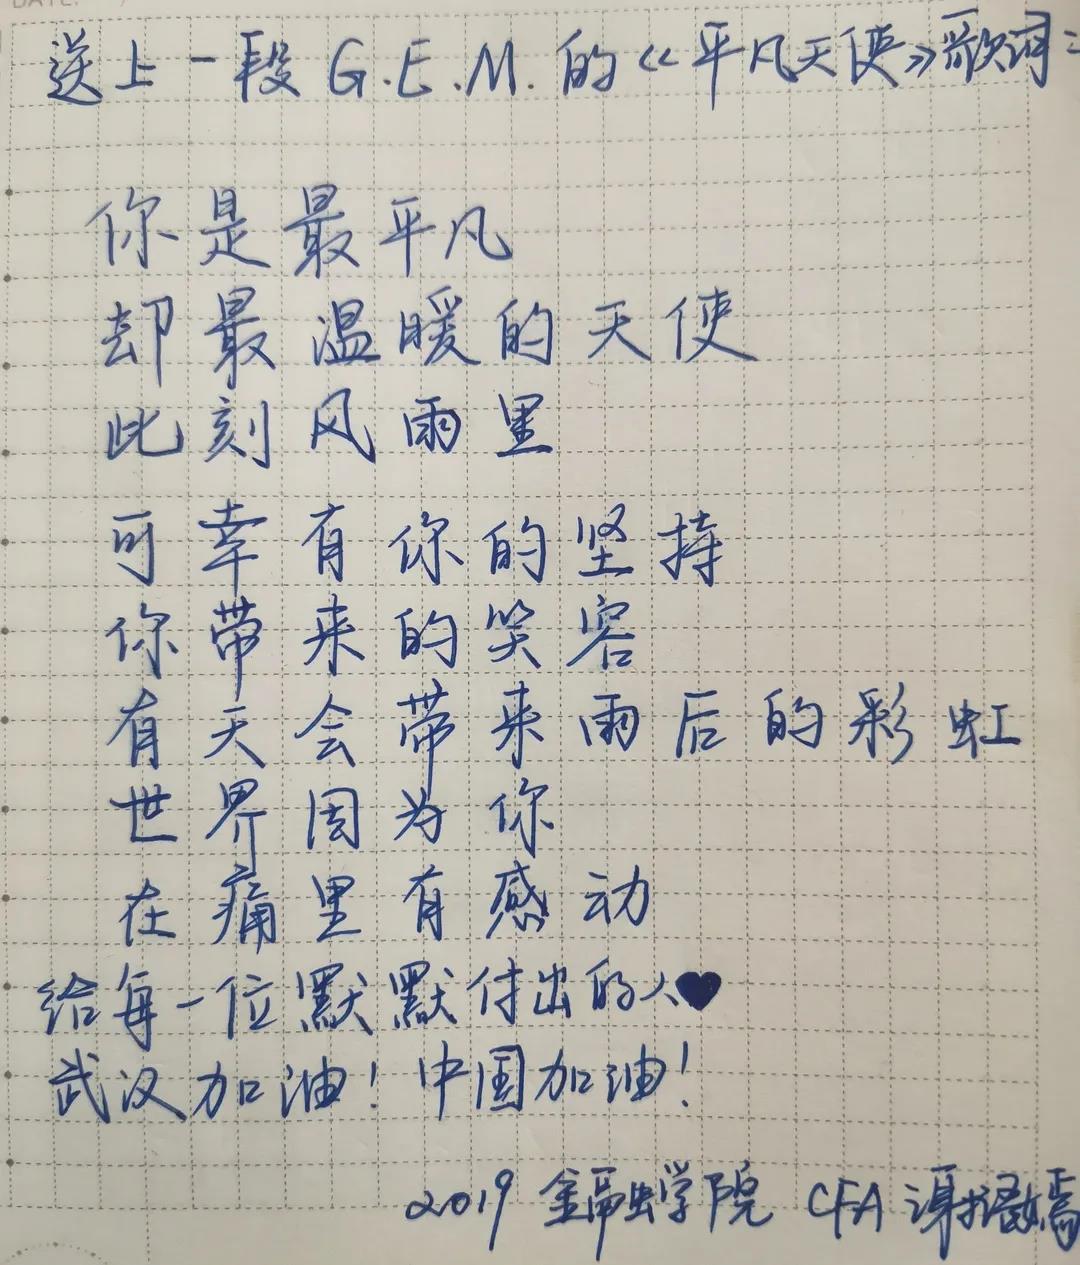 送上一段G.E.M.的《平凡天使》歌词：
你是最平凡
却最温暖的天使
此刻风雨里
可幸有你的坚持
你带来的笑容
有天会带来雨后的彩虹
世界因为你
在痛里有感动
给每一位默默付出的人♥
武汉加油！中国加油！
2019 金融学院 CFA 谢